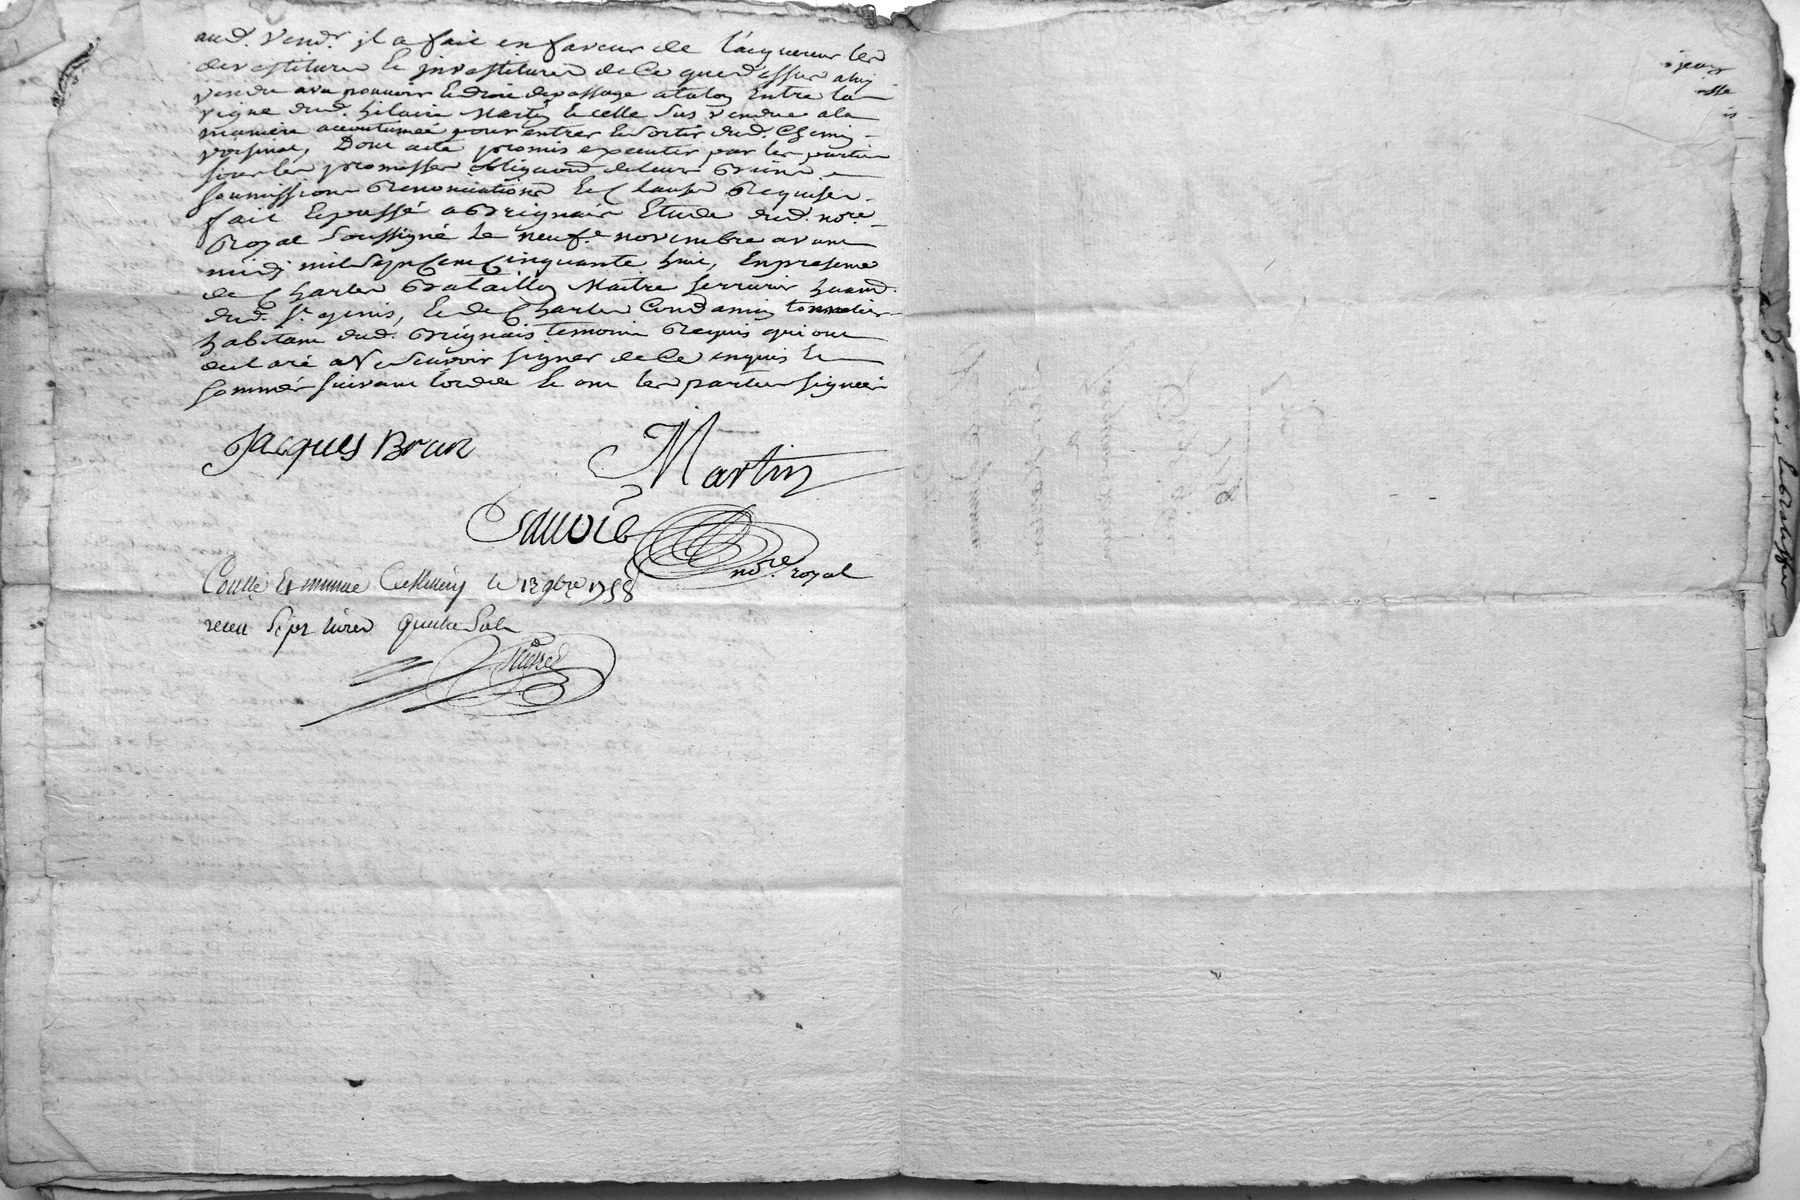 aud. Vendr. il a fait en faveur de l'acquereur les
devestitures & jnvestitures de Ce que d'essus ainsy
Vendu avec pouvoir & droit de passage a talon Entre la
vigne dud. hilaire Marty & celle sus vendue a la
maniere accoutumée pour entrer & sortir dud. Chemin
Dont acte promis executer par les parties
sous les promesses obligaons de leurs Biens
soumissions Renonciations & Clauses Requises
fait & passé a Brignais Etude dud. nore.
Royal Soussigné le neufe. novembre avant
midy mil Sept Cent Cinquante huit, En presence
de Charles Bataillon Maitre serrurier
dud. St. genis, & de Charles Condamin tonnelier
habitant dud. Brignais temoins Requis qui ont
declaré ne Scavoir signer de Ce enquis &
sommés suivant l'ordce & ont les parties signées
Jacques Brun
Martin
Sauvié
nore. royal
le 13 9bre 1758
receu Sept livres quatre Sols